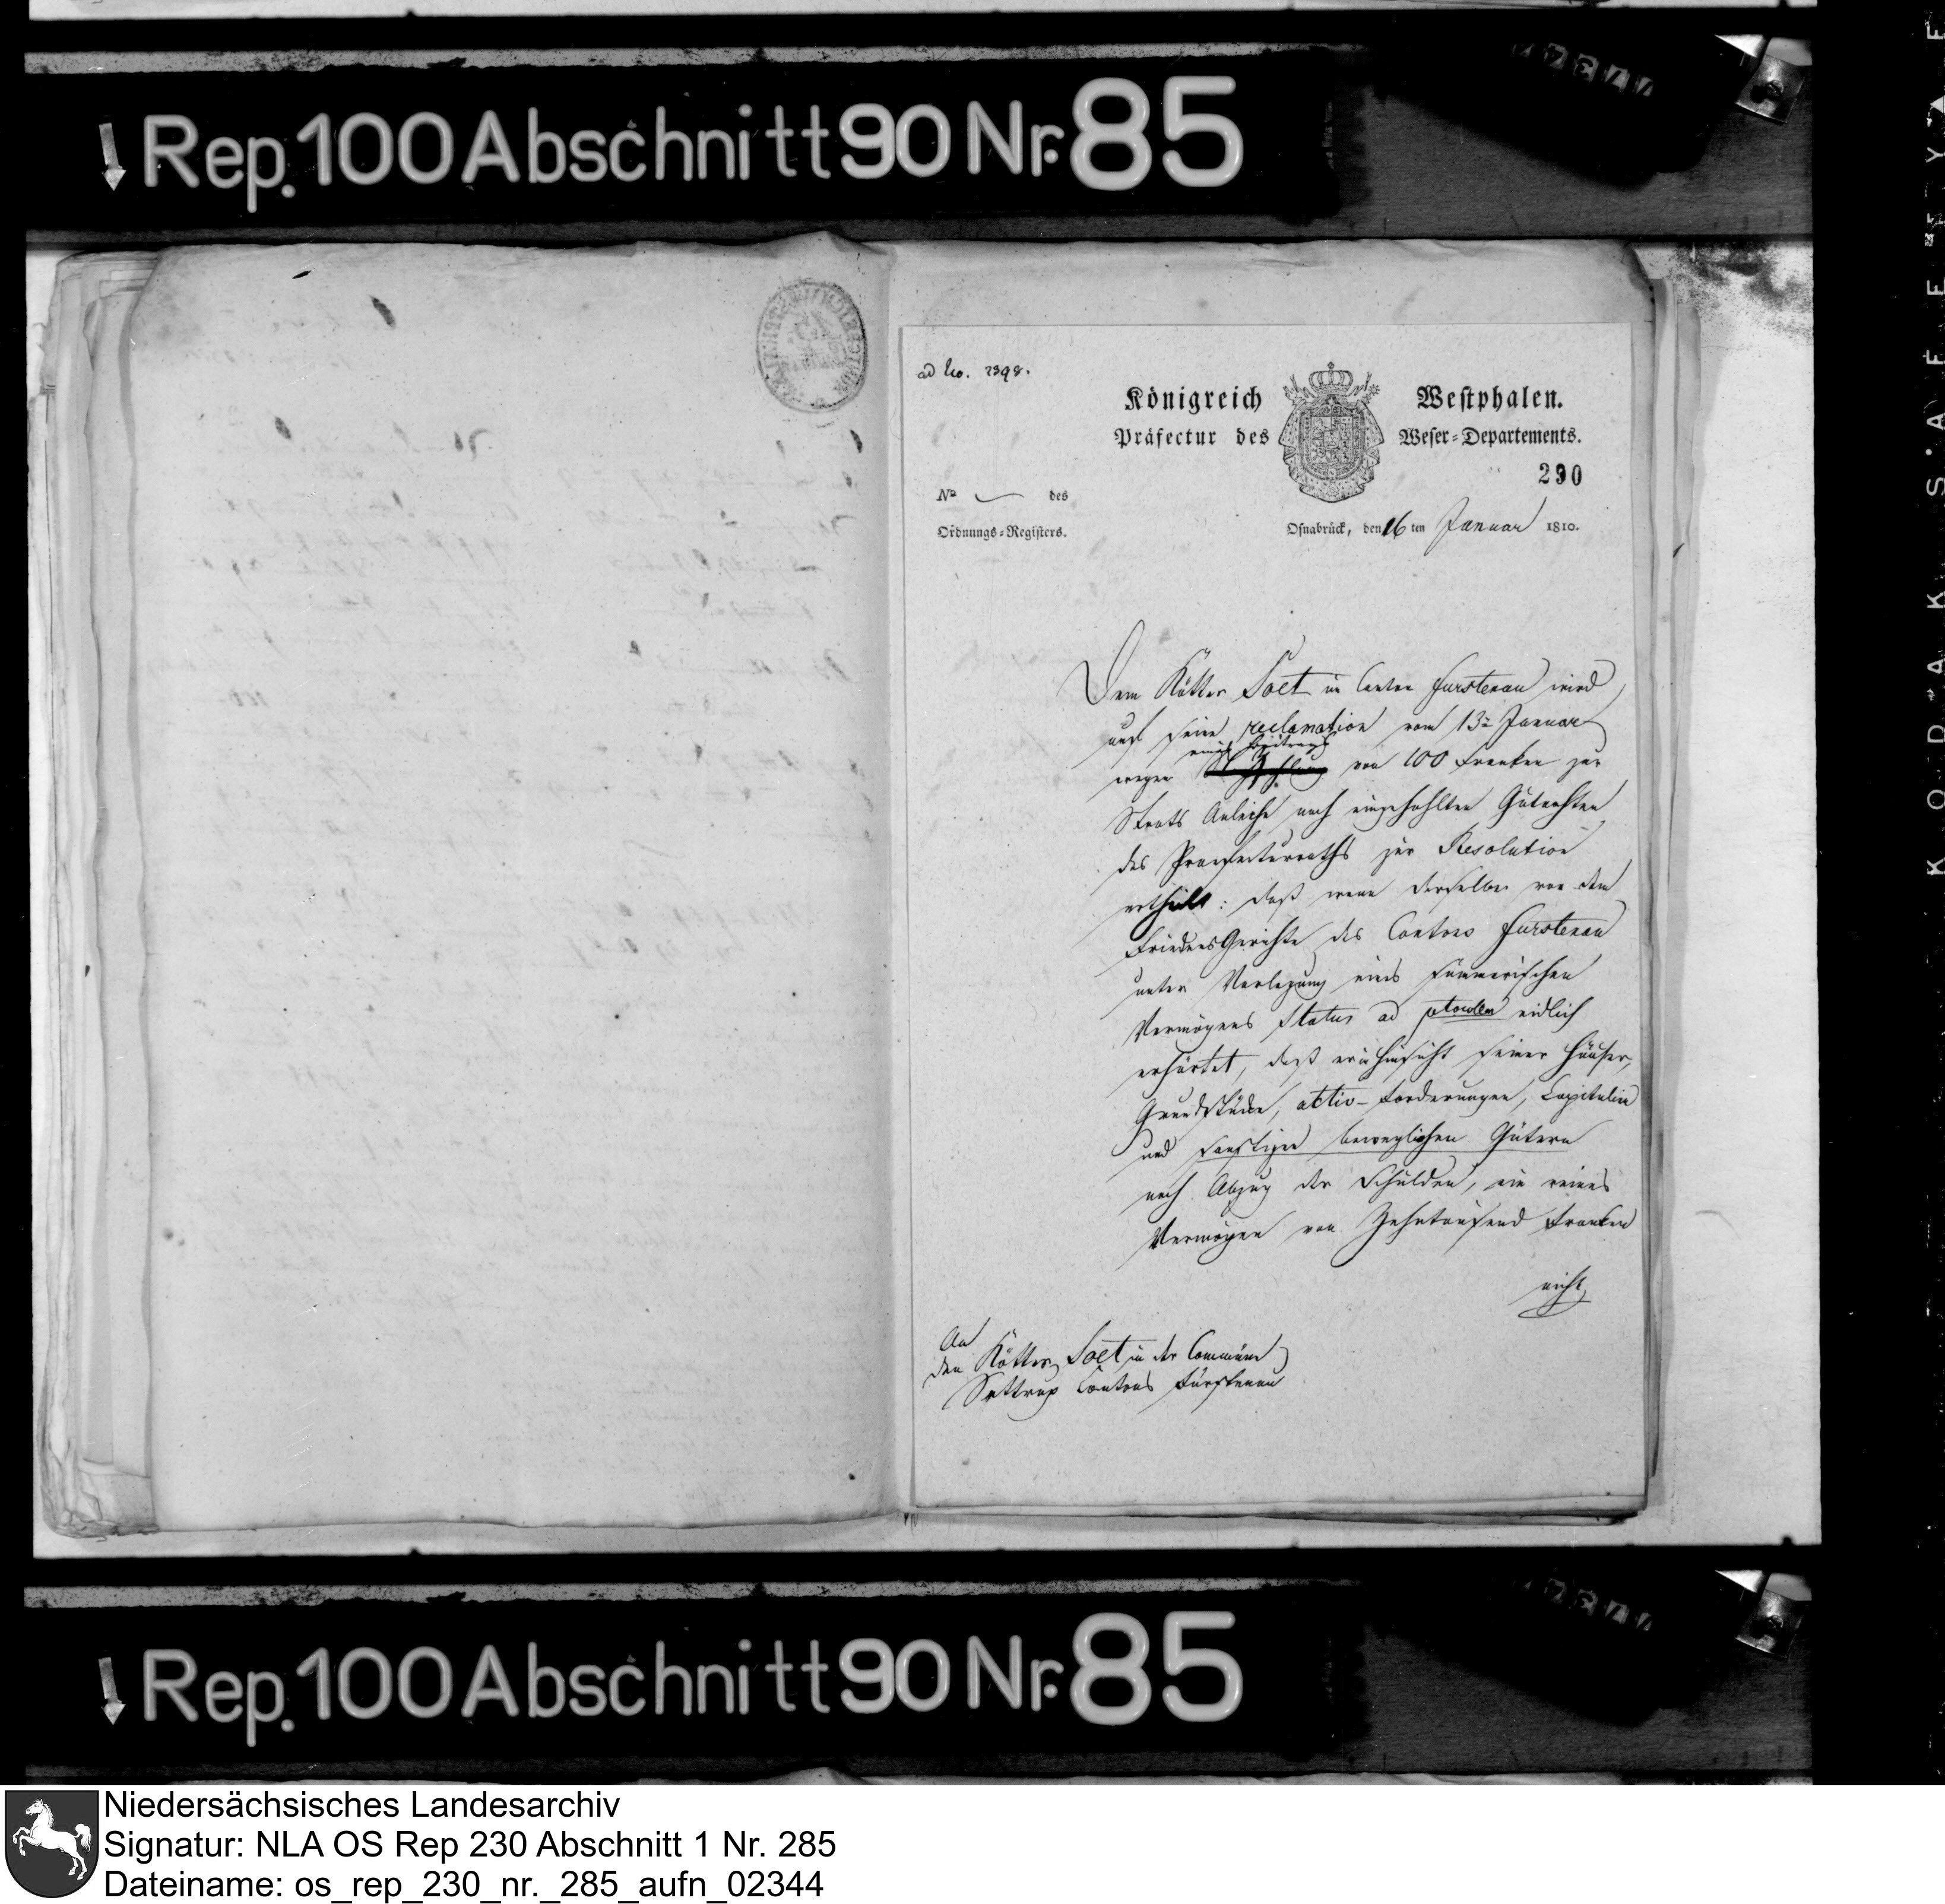 Rep. 100 Abschnitt 90 Nr. 85
ad No. 2398.
Königreich Westphalen.
Präfectur des Weser-Departements.
290
No des
Ordnungs-Registers.
Osnabrück, den 16 ten Januar 1810.
Dem Kötter Soet im Canton Furstenau wird
auf seine reclamation vom 13n Januar
eines Beitrags
wegen von 100 Franken zur
Staats Anleihe nach eingehohlten Gutachten
des Praefecturraths zur Resolution
ertheilt: daß wenn derselbe vor dem
FriedensGerichte des Cantons Furstenau
unter Vorlegung eines summarischen
Vermögens Status ad eidlich
erhärtet, daß er in Hinsicht seiner Häuser,
Grundstücke, activ-Forderungen, Capitalien
und sonstigen beweglichen Gütern
nach Abzug der Schulden, ein reines
Vermögen von Zehntausend Franken
nicht
An
den Kötter Soet in der Commüne
Settrup Cantons Fürstenau
Rep. 100 Abschnitt 90 Nr. 85
KODAK SAFETY
Niedersächsisches Landesarchiv
Signatur: NLA OS Rep 230 Abschnitt 1 Nr. 285
Dateiname: os_rep_230_nr._285_aufn_02344